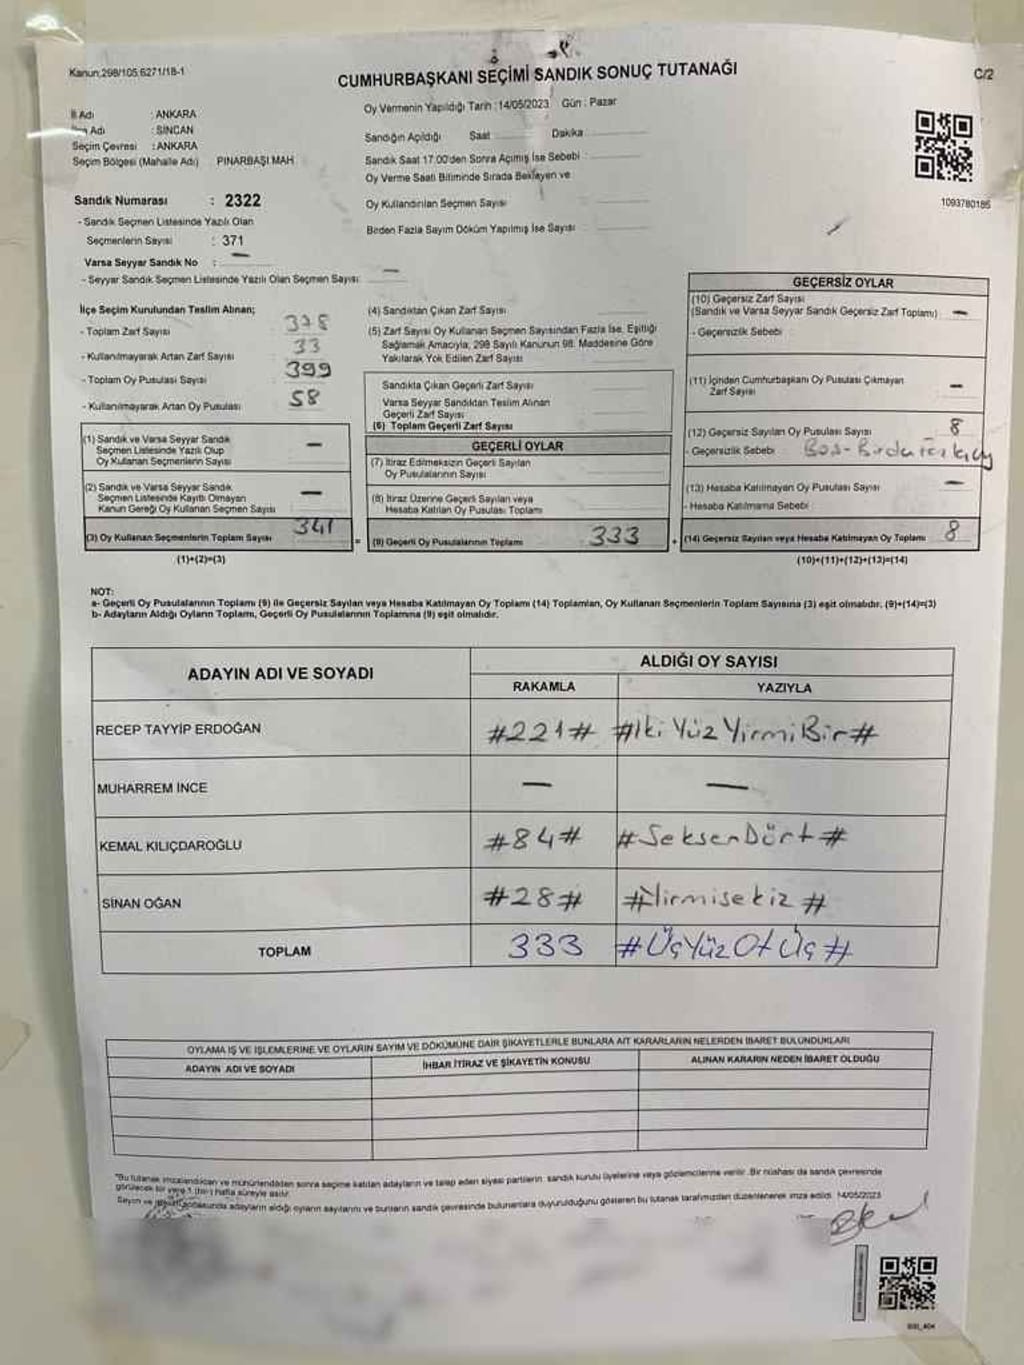 Kanun;298/105.6271/18-1
CUMHURBAŞKANI SEÇİMİ SANDIK SONUÇ TUTANAĞI
C/2
İl Adı : ANKARA
Adı : SİNCAN
Seçim Çevresi : ANKARA
Seçim Bölgesi (Mahalle Adı) PINARBAŞI MAH
Oy Vermenin Yapıldığı Tarih : 14/05/2023 Gün : Pazar
Sandığın Açıldığı Saat Dakika
Sandık Saat 17.00'den Sonra Açılmış İse Sebebi :
Oy Verme Saati Bitiminde Sırada Bekleyen ve
Oy Kullandırılan Seçmen Sayısı
Birden Fazla Sayım Döküm Yapılmış İse Sayısı
1093780186
Sandık Numarası : 2322
- Sandık Seçmen Listesinde Yazılı Olan
Seçmenlerin Sayısı : 371
Varsa Seyyar Sandık No : —
- Seyyar Sandık Seçmen Listesinde Yazılı Olan Seçmen Sayısı: —
İlçe Seçim Kurulundan Teslim Alınan;
- Toplam Zarf Sayısı 378
- Kullanılmayarak Artan Zarf Sayısı 33
- Toplam Oy Pusulası Sayısı 399
- Kullanılmayarak Artan Oy Pusulası 58
(1) Sandık ve Varsa Seyyar Sandık
Seçmen Listesinde Yazılı Olup
Oy Kullanan Seçmenlerin Sayısı —
(2) Sandık ve Varsa Seyyar Sandık
Seçmen Listesinde Kayıtlı Olmayan
Kanun Gereği Oy Kullanan Seçmen Sayısı —
(3) Oy Kullanan Seçmenlerin Toplam Sayısı 341
(1)+(2)=(3)
(4) Sandıktan Çıkan Zarf Sayısı
(5) Zarf Sayısı Oy Kullanan Seçmen Sayısından Fazla İse, Eşitliği
Sağlamak Amacıyla, 298 Sayılı Kanunun 98. Maddesine Göre
Yakılarak Yok Edilen Zarf Sayısı
Sandıkta Çıkan Geçerli Zarf Sayısı
Varsa Seyyar Sandıktan Teslim Alınan
Geçerli Zarf Sayısı
(6) Toplam Geçerli Zarf Sayısı
GEÇERLİ OYLAR
(7) İtiraz Edilmeksizin Geçerli Sayılan
Oy Pusulalarının Sayısı
(8) İtiraz Üzerine Geçerli Sayılan veya
Hesaba Katılan Oy Pusulası Toplamı
= (9) Geçerli Oy Pusulalarının Toplamı 333 +
GEÇERSİZ OYLAR
(10) Geçersiz Zarf Sayısı
(Sandık ve Varsa Seyyar Sandık Geçersiz Zarf Toplamı) —
- Geçersizlik Sebebi :
(11) İçinden Cumhurbaşkanı Oy Pusulası Çıkmayan
Zarf Sayısı —
(12) Geçersiz Sayılan Oy Pusulası Sayısı 8
- Geçersizlik Sebebi
(13) Hesaba Katılmayan Oy Pusulası Sayısı —
- Hesaba Katılmama Sebebi :
(14) Geçersiz Sayılan veya Hesaba Katılmayan Oy Toplamı 8
(10)+(11)+(12)+(13)=(14)
NOT:
a- Geçerli Oy Pusulalarının Toplamı (9) ile Geçersiz Sayılan veya Hesaba Katılmayan Oy Toplamı (14) Toplamları, Oy Kullanan Seçmenlerin Toplam Sayısına (3) eşit olmalıdır. (9)+(14)=(3)
b- Adayların Aldığı Oyların Toplamı, Geçerli Oy Pusulalarının Toplamına (9) eşit olmalıdır.
ADAYIN ADI VE SOYADI
ALDIĞI OY SAYISI
RAKAMLA YAZIYLA
RECEP TAYYİP ERDOĞAN #221# #İki Yüz Yirmi Bir#
MUHARREM İNCE — —
KEMAL KILIÇDAROĞLU #84# #Seksen Dört#
SİNAN OĞAN #28# #Yirmisekiz#
TOPLAM 333 #Üç Yüz Otuz Üç#
OYLAMA İŞ VE İŞLEMLERİNE VE OYLARIN SAYIM VE DÖKÜMÜNE DAİR ŞİKAYETLERLE BUNLARA AİT KARARLARIN NELERDEN İBARET BULUNDUKLARI
ADAYIN ADI VE SOYADI İHBAR İTİRAZ VE ŞİKAYETİN KONUSU ALINAN KARARIN NEDEN İBARET OLDUĞU
*Bu tutanak imzalandıktan ve mühürlendikten sonra seçime katılan adayların ve talep eden siyasi partilerin sandık kurulu üyelerine veya gözlemcilerine verilir. Bir nüshası da sandık çevresinde
görülecek bir yere 1 (bir) hafta süreyle asılır.
Sayım ve adayların aldığı oyların sayılarını ve bunların sandık çevresinde bulunanlara duyurulduğunu gösteren bu tutanak tarafımızdan düzenlenerek imza edildi. 14/05/2023